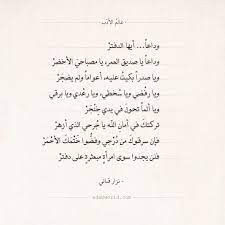 عالم الأدب
وداعاً .. أيها الدفتر
وداعاً يا صديق العمر، يا مصباحيَ الأخضر
ويا صدراً بكيتُ عليه، أعواماً ولم يضجَر
ويا رفضي ويا سخطي، ويا رعدي ويا برقي
ويا ألماً تحول في يدي خِنْجَر
تركتكَ في أمان الله يا جُرحي الذي أزهر
فإن سرقوك من دُرجي وفضُّوا خَتْمَكَ الأحمَر
فلن يجدوا سوى امرأةٍ مبعثرةٍ على دفتر
- نزار قباني -
adabworld.com